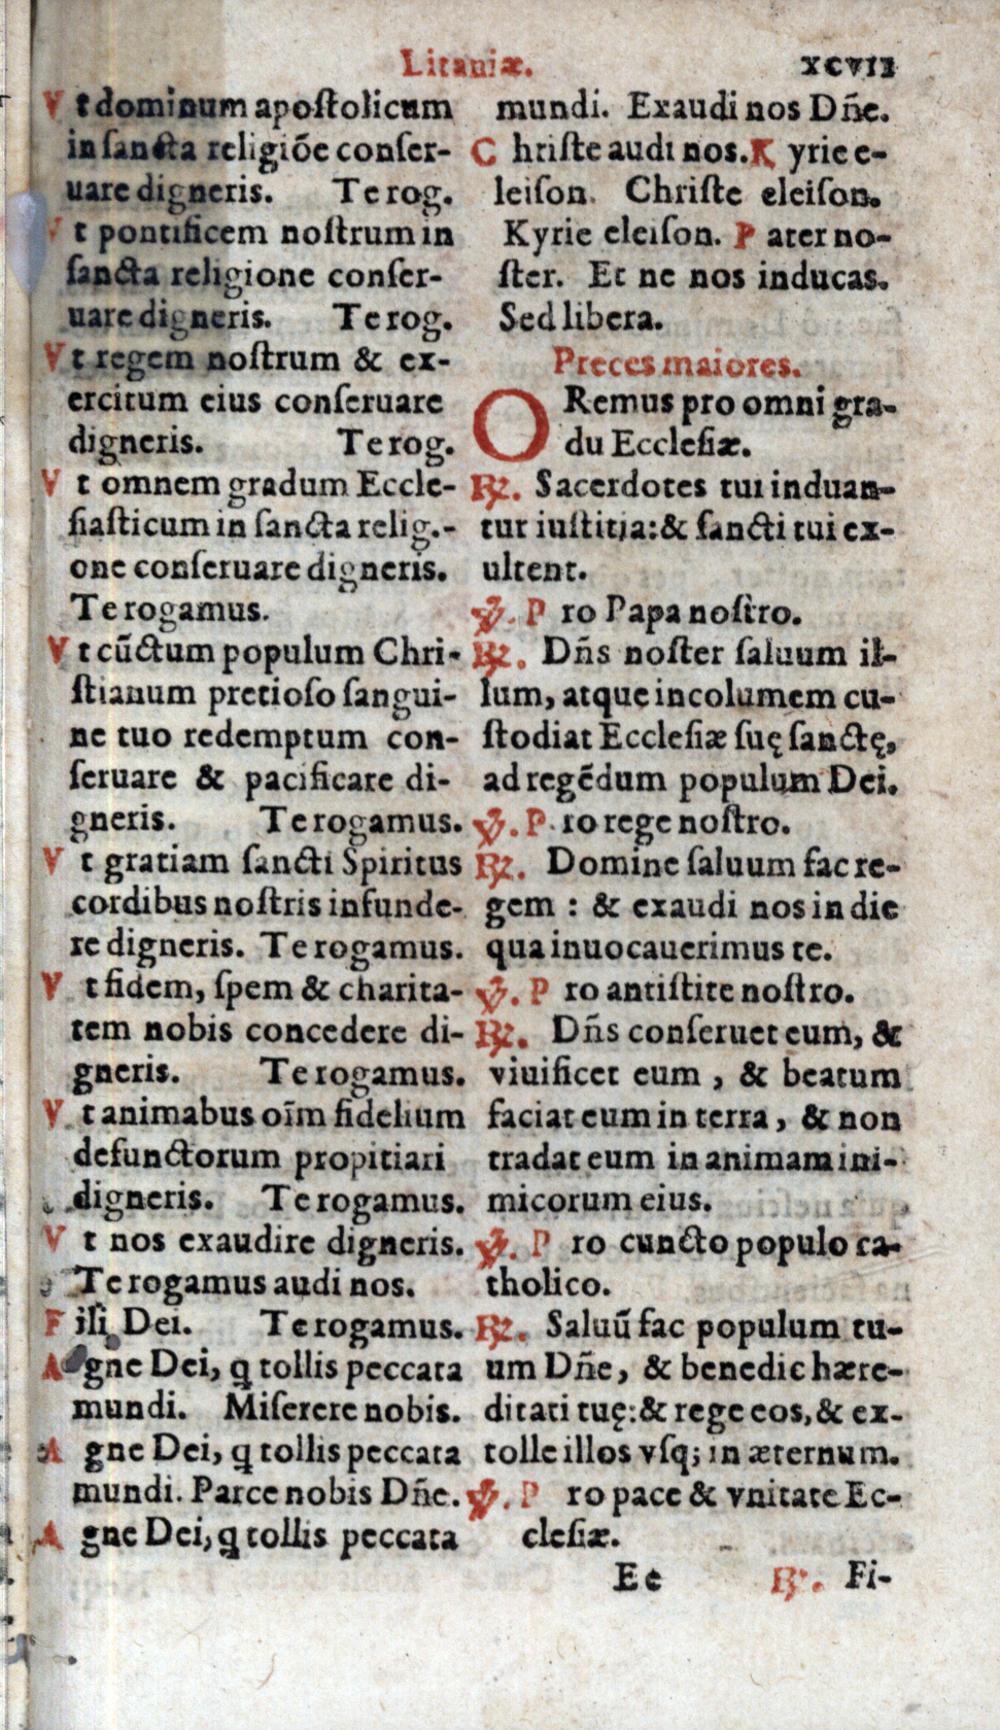 Litaniæ. XCVII
Vt dominum apoſtolicum
in ſancta religiõe conſer-
uare digneris. Te rog.
Vt pontificem noſtrum in
ſancta religione conſer-
uare digneris. Te rog.
Vt regem noſtrum & ex-
ercitum eius conſeruare
digneris. Te rog.
Vt omnem gradum Eccle-
ſiaſticum in ſancta relig.-
one conſeruare digneris.
Te rogamus.
Vt cũctum populum Chri-
ſtianum pretioſo ſangui-
ne tuo redemptum con-
ſeruare & pacificare di-
gneris. Te rogamus.
Vt gratiam ſancti Spiritus
cordibus noſtris infunde-
re digneris. Te rogamus.
Vt fidem, ſpem & charita-
tem nobis concedere di-
gneris. Te rogamus.
Vt animabus oĩm fidelium
defunctorum propitiari
digneris. Te rogamus.
Vt nos exaudire digneris.
Te rogamus audi nos.
Fili Dei. Te rogamus.
Agne Dei, ꝗ tollis peccata
mundi. Miſerere nobis.
Agne Dei, ꝗ tollis peccata
mundi. Parce nobis Dñe.
Agne Dei, ꝗ tollis peccata
mundi. Exaudi nos Dñe.
Chriſte audi nos. Kyrie e-
leiſon. Chriſte eleiſon.
Kyrie eleiſon. Pater no-
ſter. Et ne nos inducas.
Sed libera.
Preces maiores.
ORemus pro omni gra-
du Eccleſiæ.
℞. Sacerdotes tui induan-
tur iuſtitia: & ſancti tui ex-
ultent.
℣. Pro Papa noſtro.
℞. Dñs noſter ſaluum il-
lum, atque incolumem cu-
ſtodiat Eccleſiæ ſuę ſanctę,
ad regẽdum populum Dei.
℣. Pro rege noſtro.
℞. Domine ſaluum fac re-
gem : & exaudi nos in die
qua inuocauerimus te.
℣. Pro antiſtite noſtro.
℞. Dñs conſeruet eum, &
viuificet eum , & beatum
faciat eum in terra, & non
tradat eum in animam ini-
micorum eius.
℣. Pro cuncto populo ca-
tholico.
℞. Saluũ fac populum tu-
um Dñe, & benedic hære-
ditati tuę: & rege eos, & ex-
tolle illos vſq; in æternum.
℣. Pro pace & vnitate Ec-
cleſiæ.
Ee ℞. Fi-